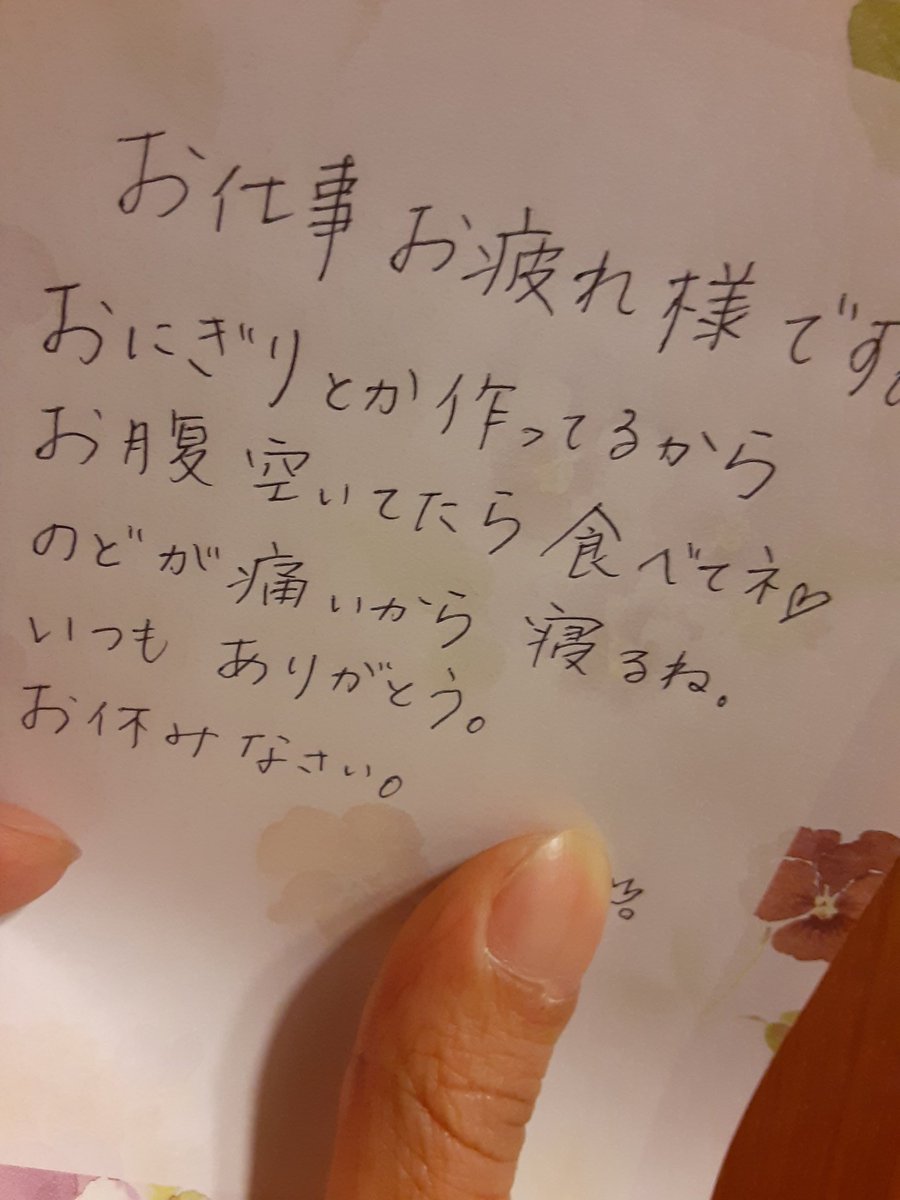 お仕事 お疲れ様です。
おにぎりとか作ってるから
お腹空いてたら食べてネ♡
のどが痛いから 寝るね。
いつも ありがとう。
お休みなさい。